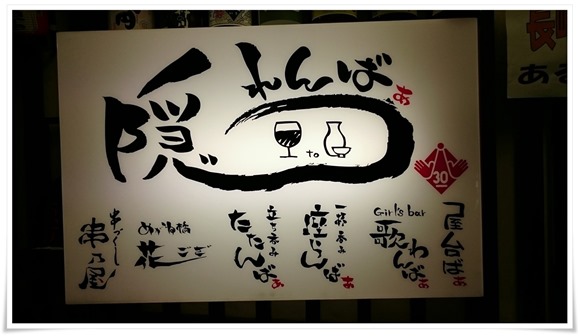 隠れんばぁ
to
30
屋台ばぁ
Girl's bar
歌わんばぁ
一杯呑み
座らんばぁ
立ち呑み
たたんばぁ
花ござ
串づくし
串乃屋
長
ある